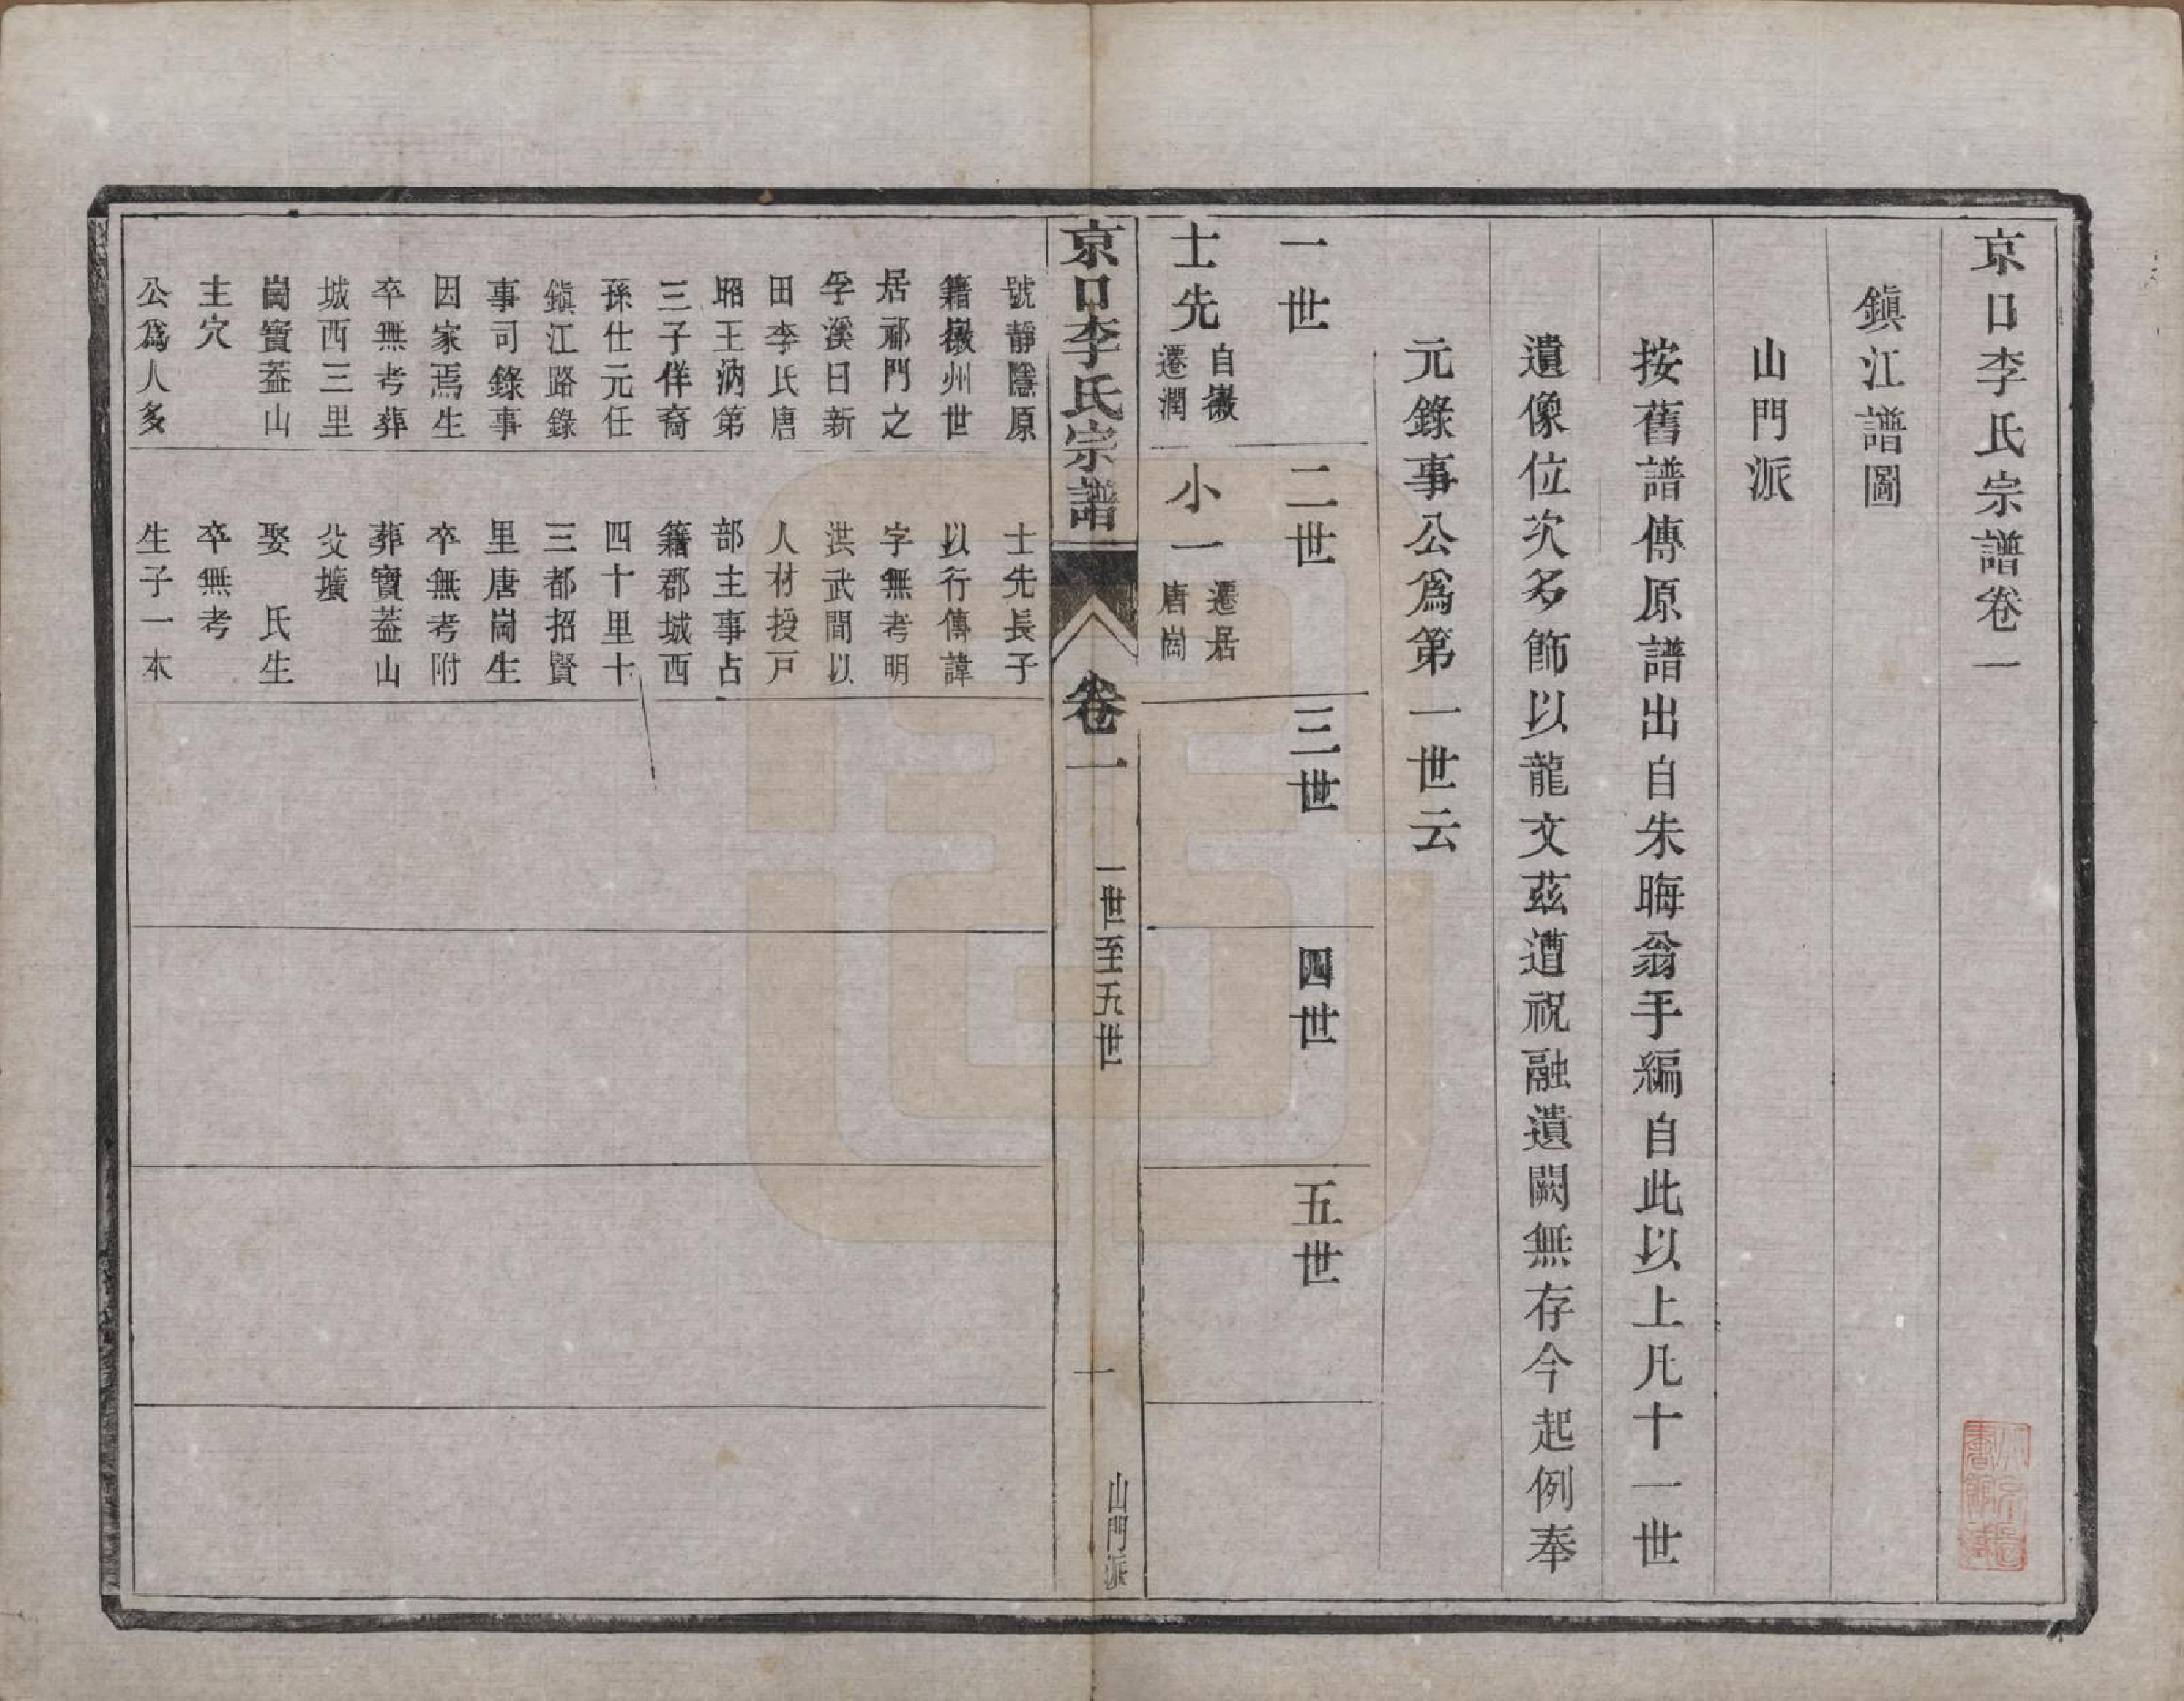 京口李氏宗譜卷一
鎭江譜圖
山門派
按舊譜傳原譜出自朱晦翁手編自此以上凡十一世
遺像位次多飾以龍文茲遭祝融遺闕無存今起例奉
元錄事公爲第一世云
一世
二世
三世
四世
五世
士先
自徽
遷潤
小一
遷居
唐崗
京口李氏宗譜
卷一
一世至五世
一
山門派
號靜隱原
籍徽州世
居祁門之
孚溪曰新
田李氏唐
昭王汭第
三子佯裔
孫仕元任
鎭江路錄
事司錄事
因家焉生
卒無考葬
城西三里
崗寶葢山
主穴
公爲人多
士先長子
以行傳諱
字無考明
洪武間以
人材授戸
部主事占
籍郡城西
四十里十
三都招賢
里唐崗生
卒無考附
葬寶葢山
父壙
娶　氏生
卒無考
生子一本